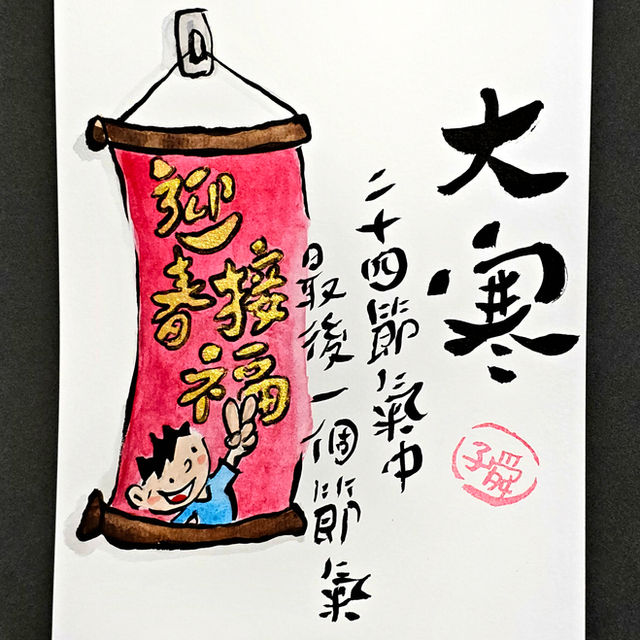 大寒
二十四節氣中
最後一個節氣
迎春接福